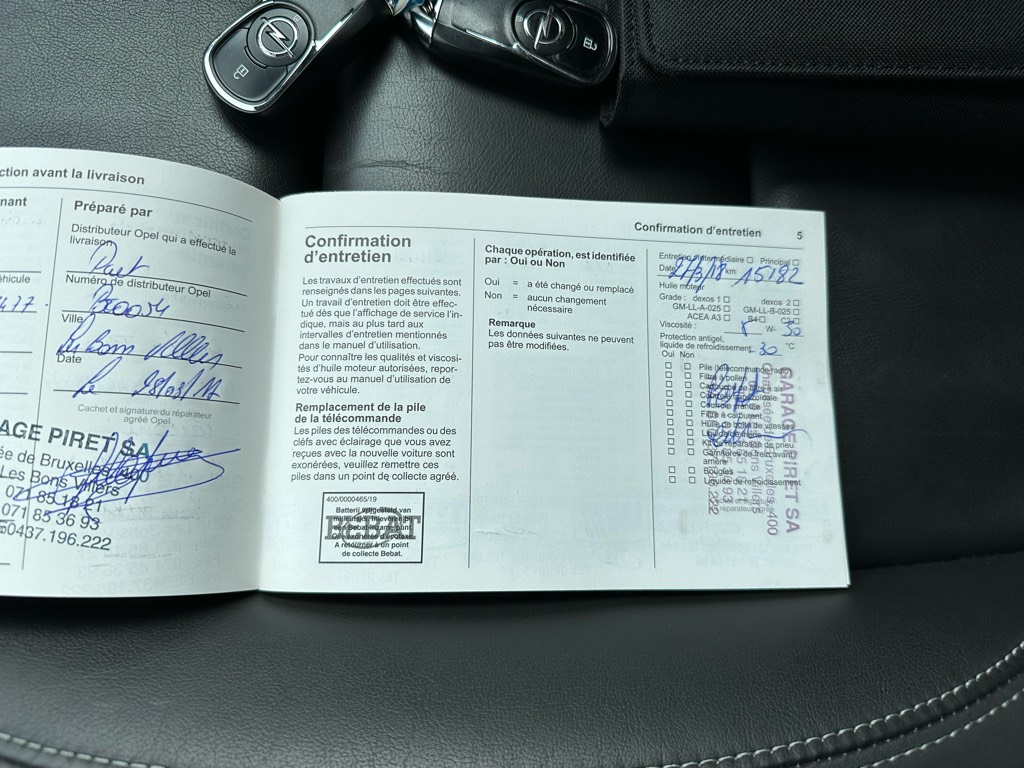 ction avant la livraison
nant
éhicule
Préparé par
Distributeur Opel qui a effectué la
livraison
Piret
Numéro de distributeur Opel
Ville
Les Bons Villers
Date
le 28/03/17
Cachet et signature du réparateur
agréé Opel
AGE PIRET SA
ée de Bruxelles 400
Les Bons Villers
071 85 18 21
071 85 36 93
0437.196.222
Confirmation d'entretien 5
Confirmation
d'entretien
Les travaux d'entretien effectués sont
renseignés dans les pages suivantes.
Un travail d'entretien doit être effec-
tué dès que l'affichage de service l'in-
dique, mais au plus tard aux
intervalles d'entretien mentionnés
dans le manuel d'utilisation.
Pour connaître les qualités et viscosi-
tés d'huile moteur autorisées, repor-
tez-vous au manuel d'utilisation de
votre véhicule.
Remplacement de la pile
de la télécommande
Les piles des télécommandes ou des
cléfs avec éclairage que vous avez
reçues avec la nouvelle voiture sont
exonérées, veuillez remettre ces
piles dans un point de collecte agréé.
400/0000465/19
BEBAT
A retourner à un point
de collecte Bebat.
Chaque opération, est identifiée
par : Oui ou Non
Oui = a été changé ou remplacé
Non = aucun changement
nécessaire
Remarque
Les données suivantes ne peuvent
pas être modifiées.
Entretien intermédiaire Principal
Date 27/3/18 km 15182
Huile moteur
Grade : dexos 1 dexos 2
GM-LL-A-025 GM-LL-B-025
ACEA A3 B4 C3
Viscosité : W- 30
Protection antigel,
liquide de refroidissement 30 °C
Oui Non
Pile (télécommande radio)
Filtre à pollen
Cartouche de filtre à air
Filtre à carburant
Huile de boîte de vitesses
Liquide de frein
Kit de réparation de pneu
Garnitures de frein avant
arrière
Bougies
Liquide de refroidissement
GARAGE PIRET SA
Chaussée de Bruxelles, 400
Les Bons Villers